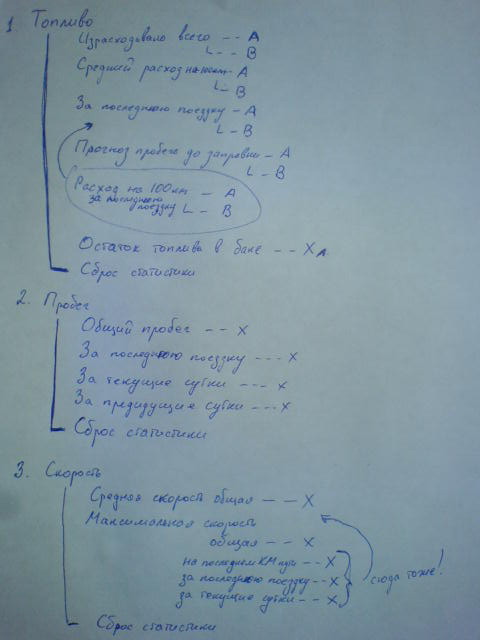 1. Топливо
Израсходовано всего -- A
L -- B
Средний расход на 100км - A
L -- B
За последнюю поездку - A
L - B
Прогноз пробега до заправки - A
L - B
Расход на 100км - A
за последнюю
поездку L - B
Остаток топлива в баке -- X л.
Сброс статистики
2. Пробег
Общий пробег -- X
За последнюю поездку --- X
За текущие сутки --- X
За предидущие сутки --- X
Сброс статистики
3. Скорость
Средняя скорость общая -- X
Максимальная скорость
общая -- X
на последнем КМ пути -- X
за последнюю поездку -- X
сюда тоже!
за текущие сутки -- X
Сброс статистики